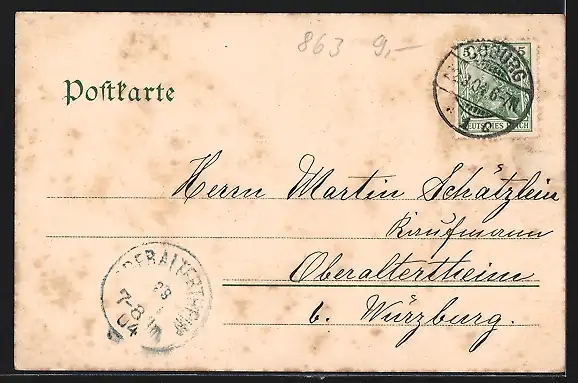 863 9,-
Postkarte
COBURG
DEUTSCHES REICH
Herrn Martin Schätzlein
Kaufmann
Oberaltertheim
b. Würzburg.
OBERALTERTHEIM
7-8
04